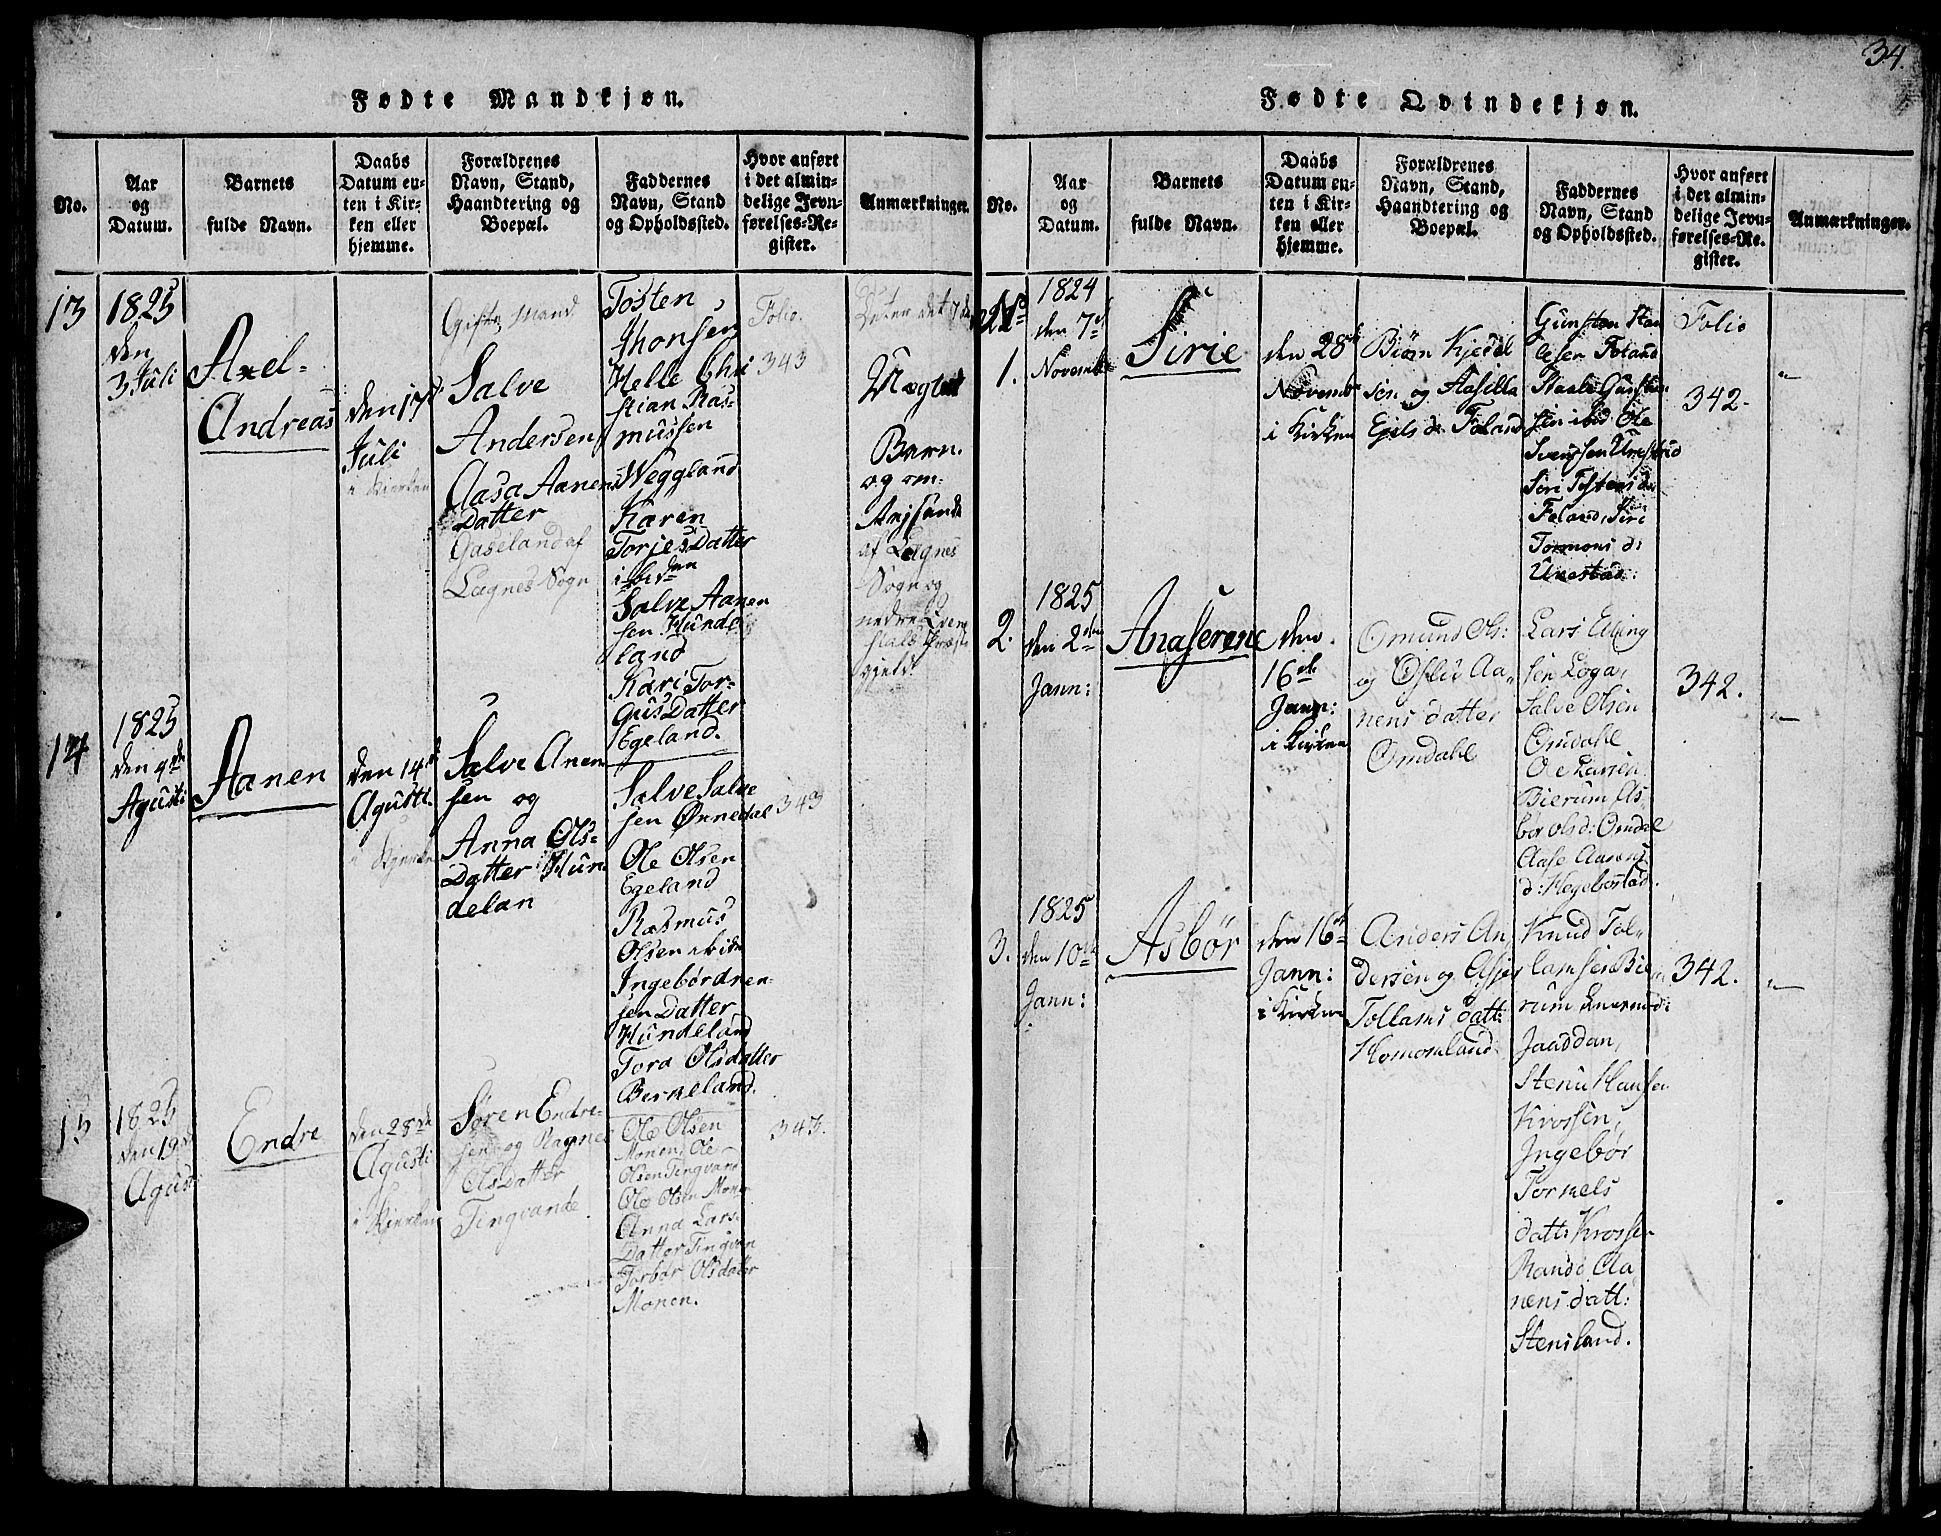 34.
Fødte Mandkjøn.
No.
Aar
og
Datum.
Barnets
fulde Navn.
Daabs
Datum en-
ten i Kir-
ken eller
hjemme.
Forældrenes
Navn, Stand,
Haandtering og
Boepæl.
Faddernes
Navn, Stand
og Opholdssted.
Hvor anført
i det almin-
delige Jevn-
førelses-Re-
gister.
Anmærkninger.
13
1825
den
3 Juli
Axel-
Andreas
den 17de
Juli
i Kierken
Gifte Mand
Salve
Andersen
Aasa Aanens
Datter
Gaseland af
Lagnes Sogn
Tosten
Thonsen
Helle Chri
stian Ras-
mussen
Weggland
Karen
Torjes Datter
ibiden
Salve Aanen
sen Hunde
land
Kari Tor-
Gus Datter
Egeland.
Folio.
343
Barn.
og om-
af Lagnes
Sogn og
nedre
14
1825
den 4de
Agusti
Aanen
den 14de
Agusti.
i Kierken
Salve Anen
sen og
Anna Ols-
Datter Hun
delan
Salve Salve
sen Ønnedal
Ole Olsen
Egeland
Rasmus
Olsen ibid
Ingebør
sen Datter
Hundeland
Tora Olsdatter
Berkeland.
343
15
1825
den 19de
Agusti
Endre
den 28de
Agusti
i Kierken
Søren Endre-
sen og Ragne
Ols Datter
Tingvande.
Ole Olsen
Monen, Ole
Olsen Tingvane
Ole Olsen Mone
Anna Lars-
Datter Tingvan
Torbør Olsdatter
Monen.
343.
Fødte Qvindekjøn.
No.
Aar
og
Datum.
Barnets
fulde Navn.
Daabs
Datum en-
ten i Kir-
ken eller
hjemme.
Forældrenes
Navn, Stand,
Haandtering og
Boepæl.
Faddernes
Navn, Stand
og Opholdssted.
Hvor anført
i det almin-
delige Jevn-
førelses-Re-
gister.
Anmærkninger.
1.
1824
den 7de
Novemb
Sirie
den 28de
Novemb
i Kirken
Biøn Kjedel
sen og Aasille
Egels dr Foland
Gunsten Stan
lesen Foland
Staale Gunsten
sen ibid Ole
Svensen Urestad
Siri Tostens dr
Foland, Siri
Tormons d:
Urestad:
Folio
342.
"
2.
1825
den 2den
Jann:
Anaserene
den
16de
Jann:
i Kirken
Omund Ols:
og Oslu Aa-
nens datter
Omdahl
Lars Elling
sen Loga,
Salve Olsen
Omdahl
Ole Larsen
Bierum As
bør olsd: Omdal
Aase Aanens
d: Hegebostad.
342.
"
3.
1825
den 10de
Jann:
Asbør
den 16de
Jann:
i Kirken
Anders An
dersen og Asjer
Tollams datt:
Homomland
Knud Tol-
lamsen Bie
rum
Jaaddan,
Stenu Hansen
Krossen,
Ingebør
Tormels
datt: Krossen
Randi Aa
nens datt:
Stensland.
342.
"